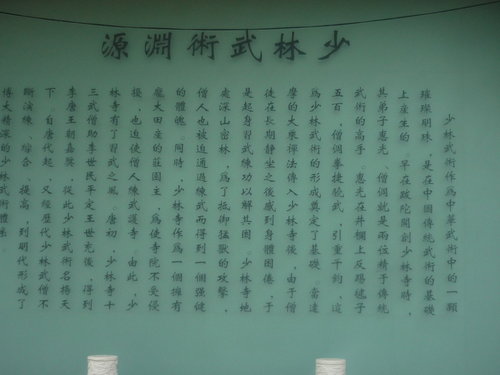 少林武術淵源
少林武術作為中華武術中的一顆
璀璨明珠，是在中國傳統武術的基礎
上產生的。早在跋陀開創少林寺時，
其弟子惠光、僧稠就是兩位精于傳統
武術的高手。惠光在井欄上反踢毽子
五百，僧稠拳捷驍武，引重千鈞、這
為少林武術的形成奠定了基礎。當達
摩的大乘禪法傳入少林寺後，由于僧
徒在長期靜坐之後感到身體困倦，于
是起身習武練功以解其困。少林寺地
處深山密林，為了抵御猛獸的攻擊，
僧人也被迫通過練武而得到一個強健
的體魄。同時，少林寺作為一個擁有
龐大田產的莊園主，為使寺院不受侵
擾，也迫使僧人練武護寺。由此，少
林寺有了習武之風。唐初，少林寺十
三武僧助李世民平定王世充後，得到
李唐王朝嘉獎，從此少林武術名揚天
下。自唐代起，又經歷代少林武僧不
斷演練、綜合、提高，到明代形成了
博大精深的少林武術體系。